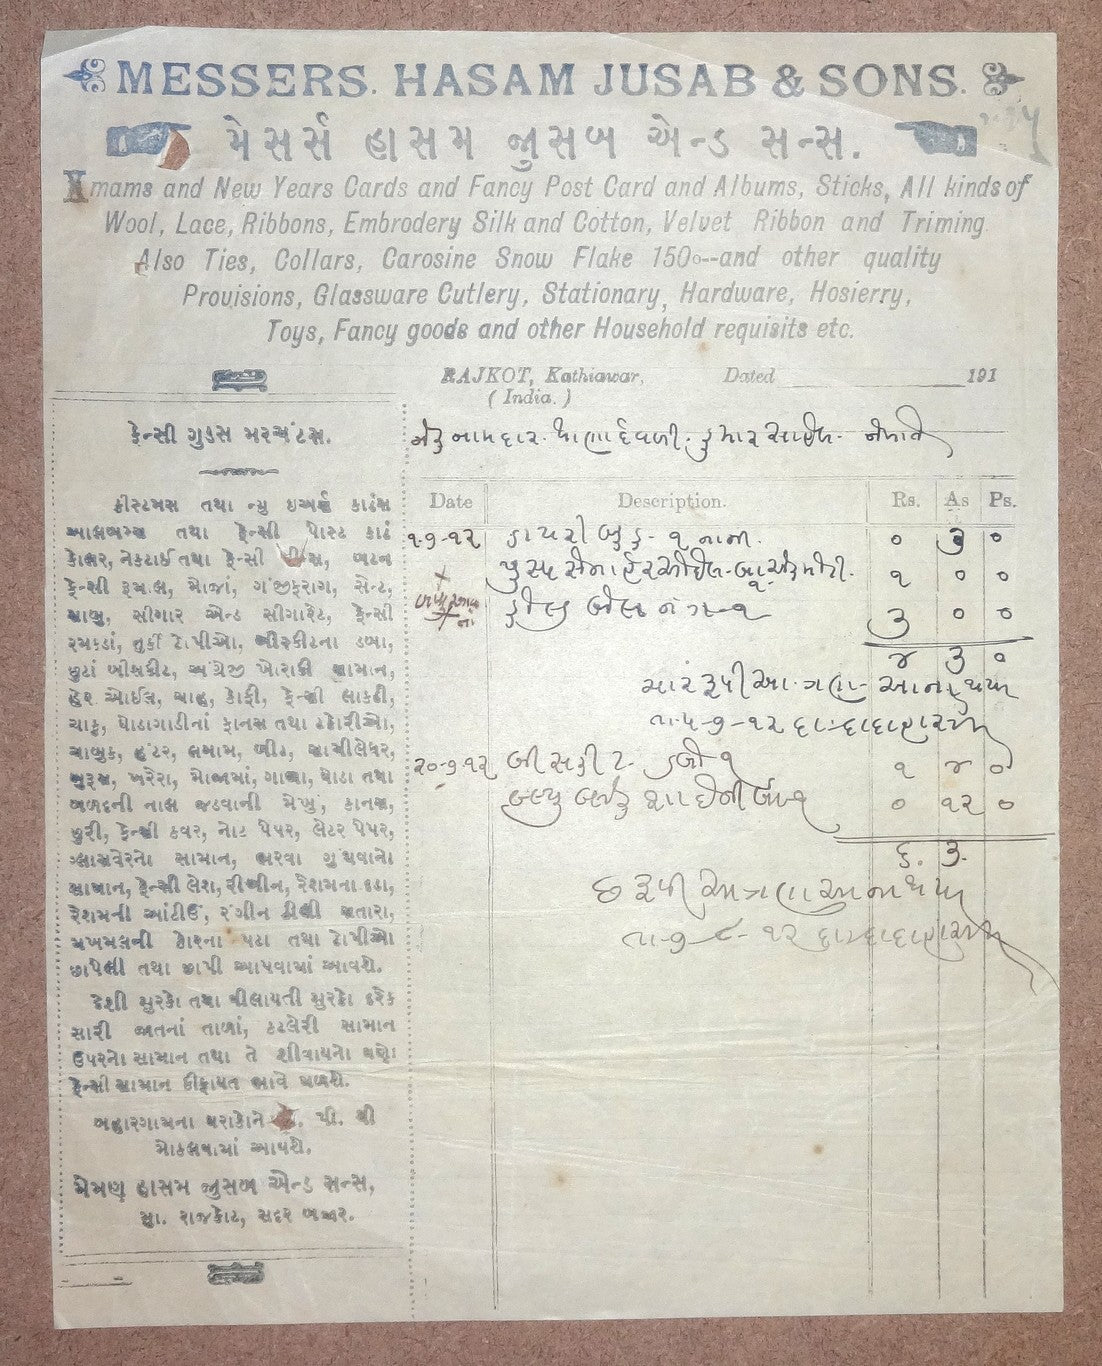 MESSERS. HASAM JUSAB & SONS.
મેસર્સ હાસમ જુસબ એન્ડ સન્સ.
Xmams and New Years Cards and Fancy Post Card and Albums, Sticks, All kinds of
Wool, Lace, Ribbons, Embrodery Silk and Cotton, Velvet Ribbon and Triming
Also Ties, Collars, Carosine Snow Flake 150o--and other quality
Provisions, Glassware Cutlery, Stationary, Hardware, Hosierry,
Toys, Fancy goods and other Household requisits etc.
RAJKOT, Kathiawar, Dated 191
( India. )
ફેન્સી ગુડસ મરચંટસ.
ક્રીસ્ટમસ તથા ન્યુ ઇઅર્સ કાર્ડસ
આલબમ્સ તથા ફેન્સી પોસ્ટ કાર્ડ
કોલર, નેકટાઈ તથા ફેન્સી બટન
ફેન્સી રૂમાલ, મોજાં, ગંજીફરાગ, સેન્ટ,
સાબુ, સીગાર એન્ડ સીગારેટ, ફેન્સી
રમકડાં, તુર્કી ટોપીઓ, બીસ્કીટના ડબા,
છુટાં બીસકીટ, અંગ્રેજી ખોરાકી સામાન,
હેર ઓઈલ, ચાહ, કોફી, ફેન્સી લાકડી,
ચાકુ, ઘોડાગાડીનાં ફાનસ તથા ટકોરીઓ,
ચાબુક, હંટર, લગામ, બીટ,
બુરૂસ, ખરેરા, મોજામાં, ગાળા, ઘોડા તથા
બળદની નાલ જડવાની મેખુ, કાનસ,
છુરી, ફેન્સી કવર, નોટ પેપર, લેટર પેપર,
ગ્લાસવેરનો સામાન, ભરવા ગુંથવાનો
સામાન, ફેન્સી લેસ, રીબીન, રેશમના દડા,
રેશમની આંટીઉં, રંગીન ટીલી સતારા,
મખમલની કોરના પટા તથા ટોપીઓ
છાપેલી તથા છાપી આપવામાં આવશે.
દેશી મુરબ્બો તથા વીલાયતી મુરબ્બો દરેક
સારી જાતનાં તાળાં, કટલેરી સામાન
ઉપરનો સામાન તથા તે શીવાયનો ઘણો
ફેન્સી સામાન કીફાયત ભાવે મળશે.
બહારગામના ઘરાકોને પી. થી
મોકલવામાં આવશે.
મેમણ હાસમ જુસબ એન્ડ સન્સ,
મુ. રાજકોટ, સદર બજાર.
નામદાર કુમાર સાહેબ
Date Description. Rs. As Ps.
૧-૭-૧૨ ડાયરી બુક - ૧ નાની. ૦ ૩ ૦
૧ ૦ ૦
૩ ૦ ૦
૪ ૩ ૦
ચાર રૂપીઆ ત્રણ આના
તા ૫-૭-૧૨
૨૦-૭-૧૨ બીસકીટ ડબો ૧ ૧ ૪ ૦
બલ્યુ બલેક શાહીની ૦ ૧૨ ૦
૬. ૩.
છ રૂપીઆ ત્રણ આના